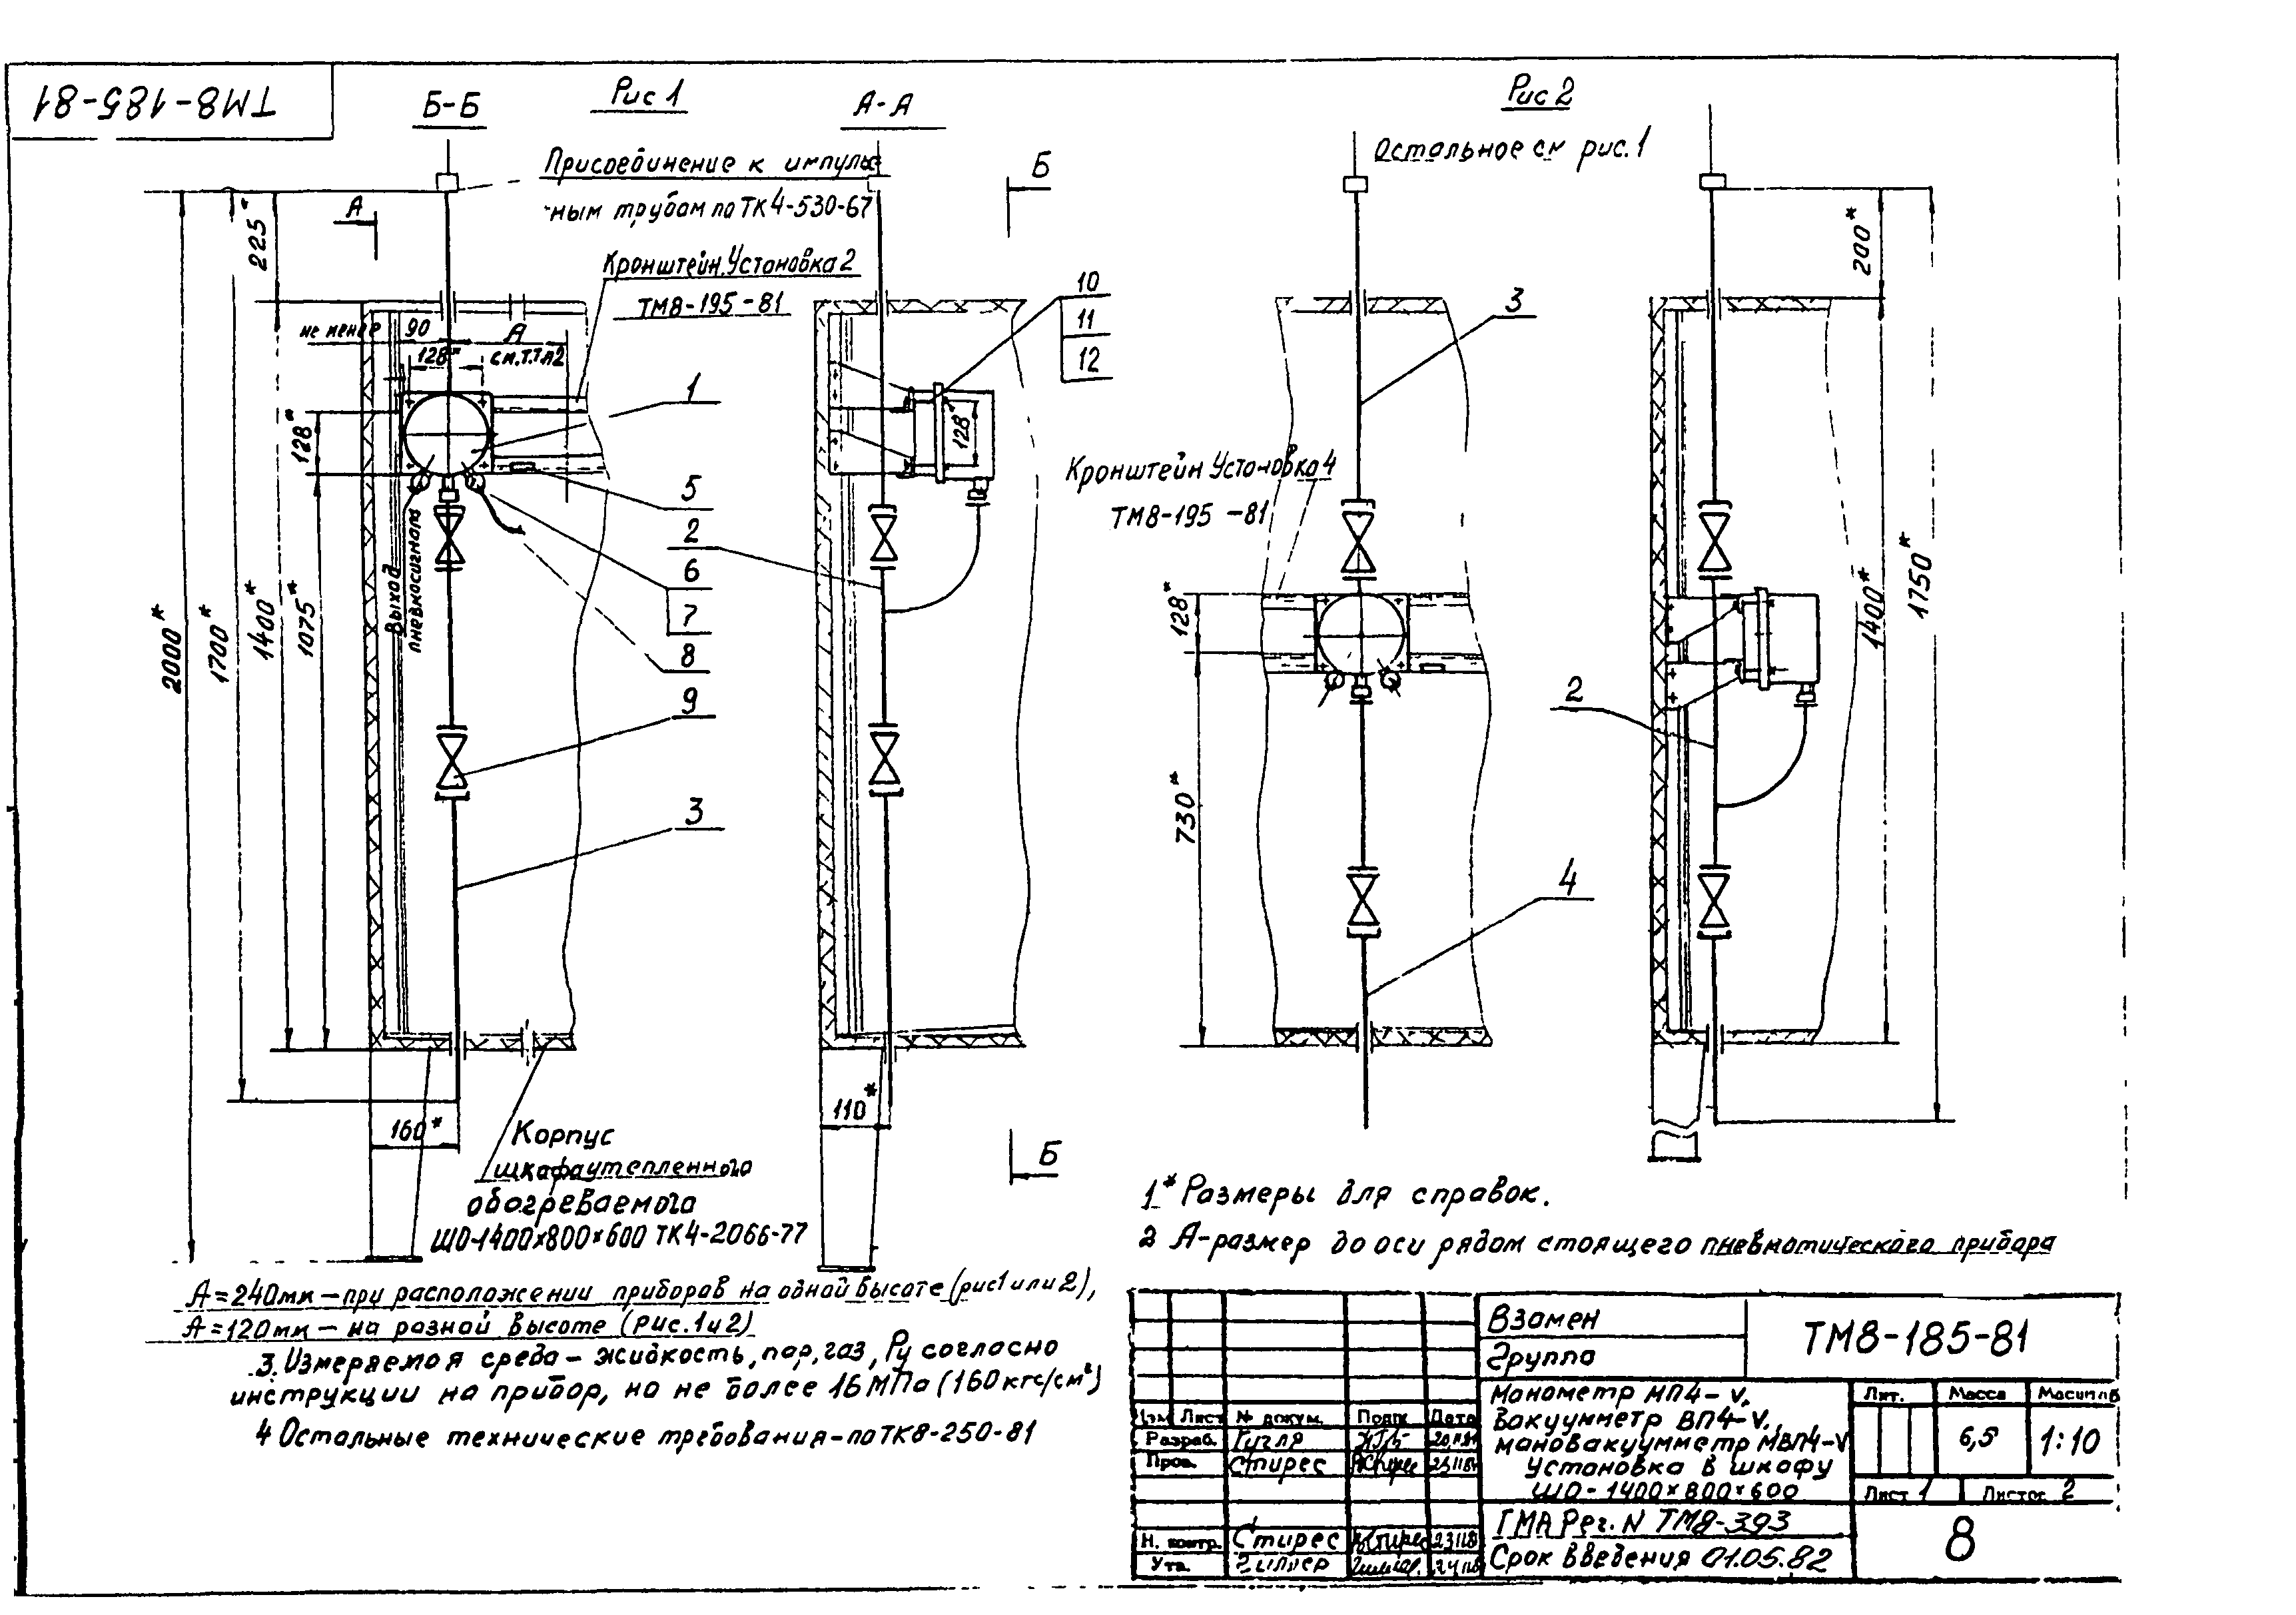 ТМ8-185-81
Б-Б
Рис 1
А-А
Рис 2
Остальное см рис. 1
Присоединение к импульс
ным трубам по ТК4-530-67
Б
А
225*
200*
Кронштейн. Установка 2
ТМ8-195-81
10
11
12
3
не менее 90
А
см. т.т п2
128*
1
128*
128*
5
2
6
7
8
9
3
Выход
пневмосигнала
2000*
1700*
1400*
1075*
Кронштейн Установка 4
ТМ8-195-81
128*
730*
2
4
1400*
1750*
160*
110*
Б
Корпус
шкафа утепленного
обогреваемого
ШО-1400×800×600 ТК4-2066-77
1* Размеры для справок.
2 А-размер до оси рядом стоящего пневматического прибора
А=240мм-при расположении приборов на одной высоте (рис1 или 2),
А=120мм - на разной высоте (рис. 1 и 2)
3. Измеряемая среда - жидкость, пар, газ, Ру согласно
инструкции на прибор, но не более 16 МПа (160 кгс/см²)
4 Остальные технические требования-по ТК8-250-81
Взамен
Группа
ТМ8-185-81
Манометр МП4-V.
Вакуумметр ВП4-V.,
мановакуумметр МВП4-V
Установка в шкафу
ШО-1400×800×600
Лит.
Масса
Масштаб
6,5
1:10
Лист 1
Листов 2
Изм Лист № докум. Подп Дата
Разраб. Гугля
Пров. Стирес
Н. контр. Стирес
Утв.
ГМА Рег. N ТМ8-393
Срок введения 01.05.82
8